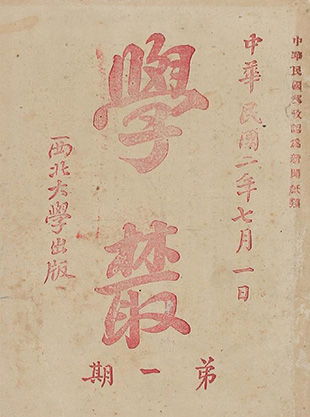 中華民國郵政認為新聞紙類
中華民國二年七月一日
學叢
西北大學出版
第一期